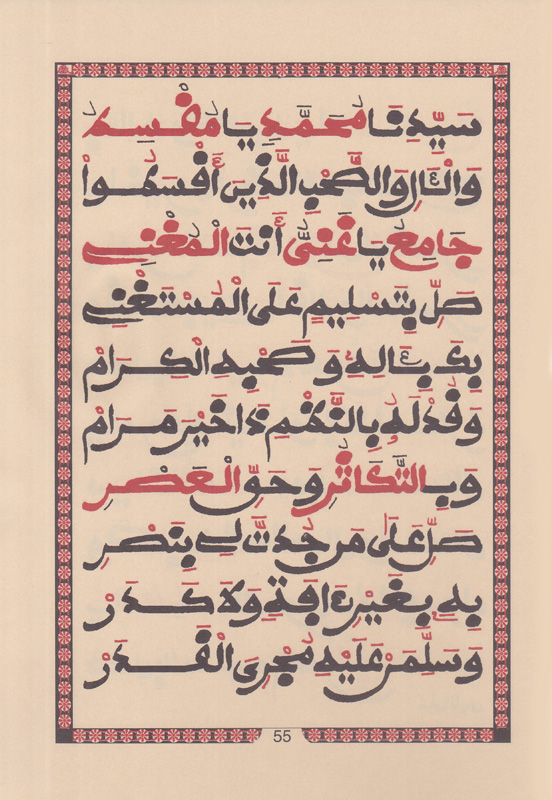 سَيِّدِنَا مُحَمَّدٍ يَا مُقْسِطُ
وَالْآلِ وَالصَّحْبِ الَّذِينَ أَقْسَطُوا
جَامِعُ يَا غَنِيُّ أَنْتَ الْمُغْنِي
صَلِّ بِتَسْلِيمٍ عَلَى الْمُسْتَغْنِي
بِكَ بِآلِهِ وَصَحْبِهِ الْكِرَامْ
وَقُدْ لَهُ بِالنَّظْمِ ذَا خَيْرَ مَرَامْ
وَبِالتَّكَاثُرِ وَحَقِّ الْعَصْرِ
صَلِّ عَلَى مَنْ جُدْتَ لِي بِنَصْرِ
بِهِ بِغَيْرِ آفَةٍ وَلَا كَدَرْ
وَسَلِّمَنْ عَلَيْهِ مُجْرِيَ الْقَدَرْ
55